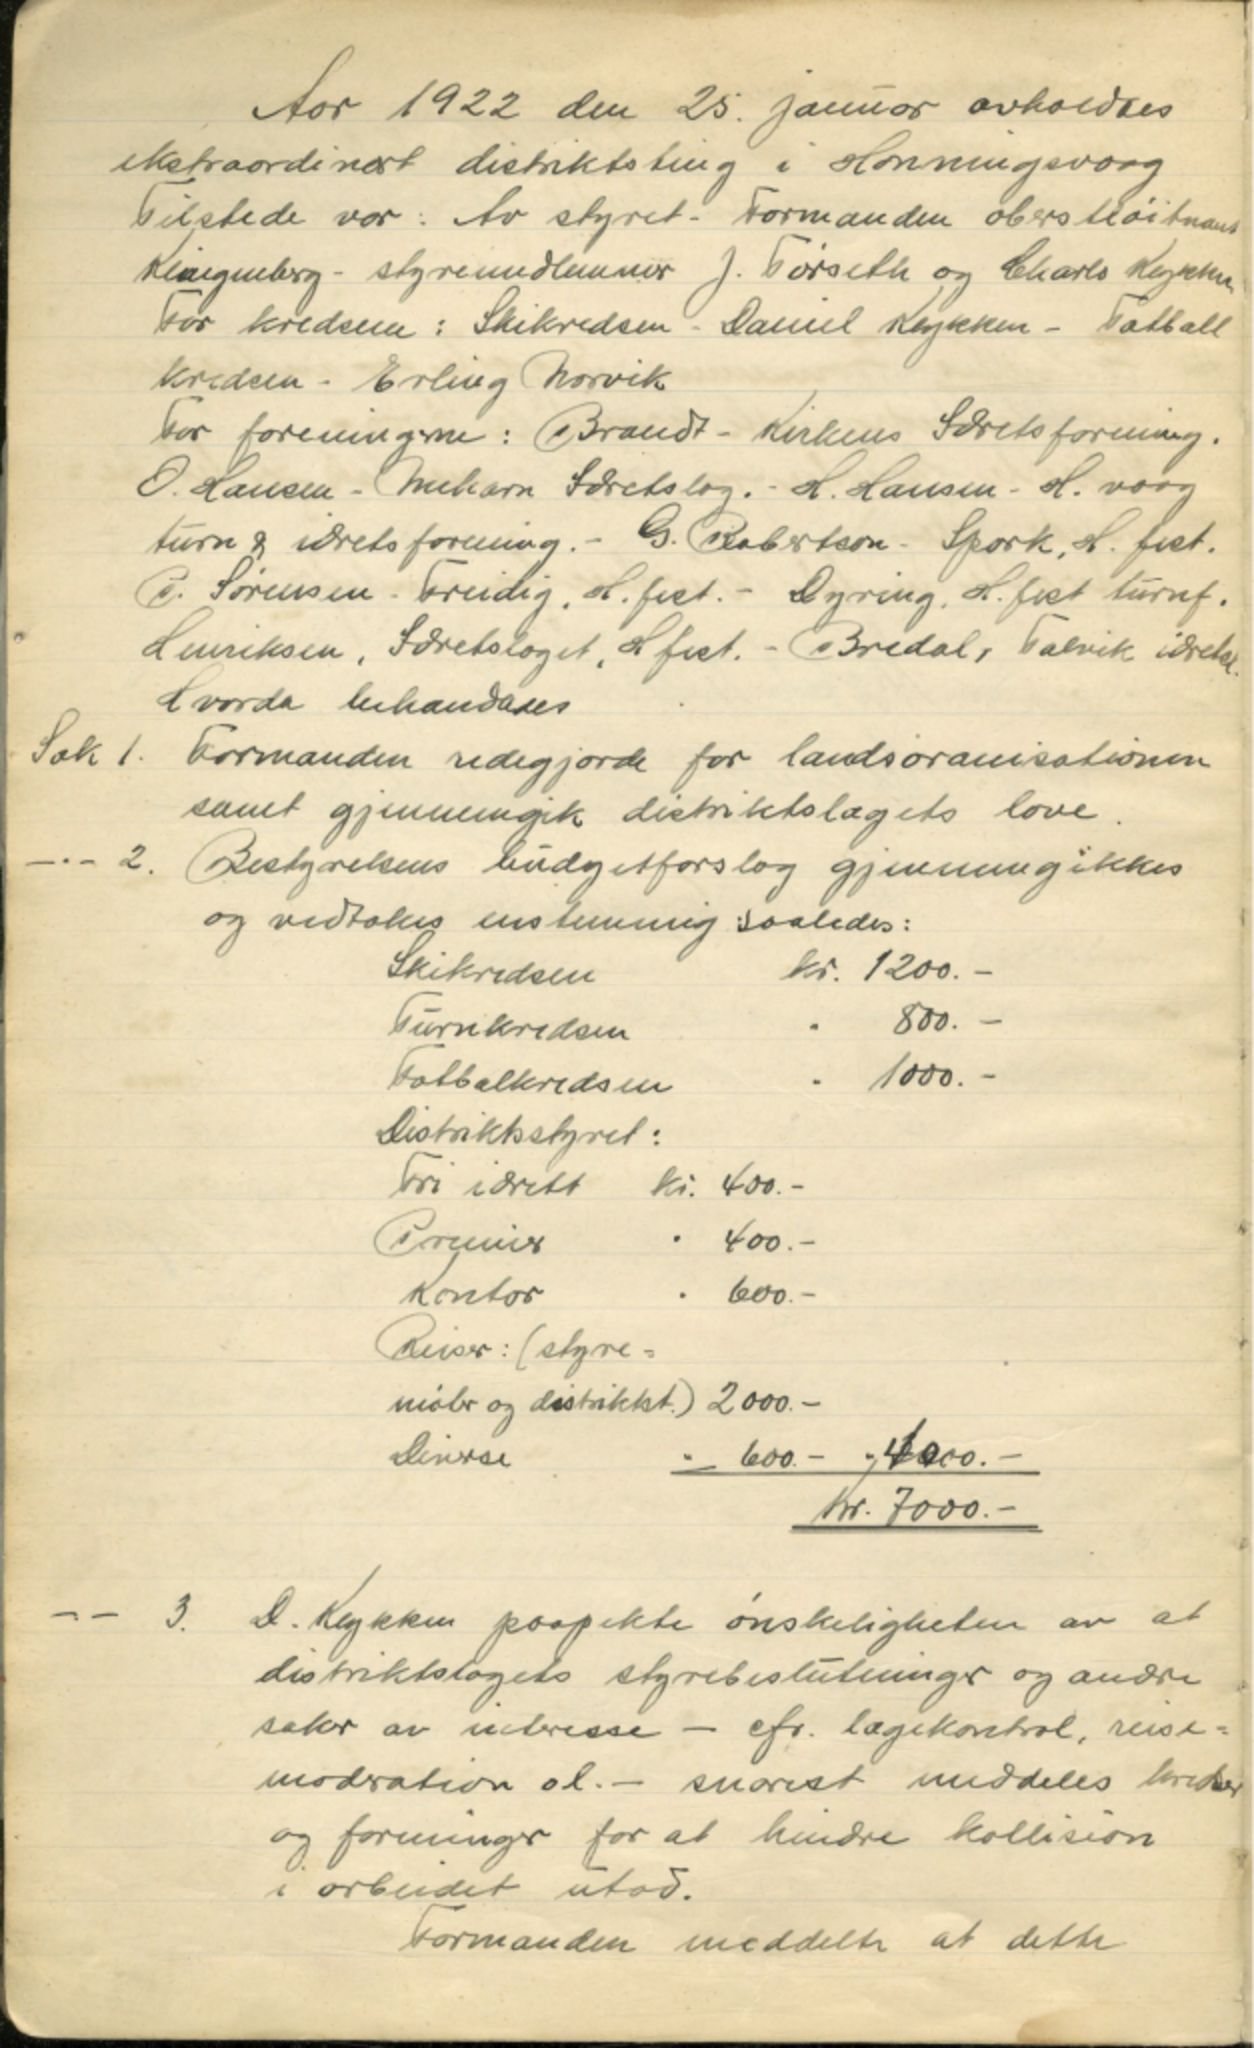 Aar 1922 den 25. januar avholdtes
ekstraordinært distriktsting i Honningsvaag
Tilstede var: Av styret - Formanden oberstløitnant
Klingenberg - styremedlemmer J. Førseth og Charls Kjykken
For kredsene: Skikredsen - Daniel Kjykken - Fotball
kredsen - Erling Norvik
For foreningerne: Brandt - Kirkenes Idrætsforening.
O. Hansen - Mehavn Idrætslag. - H. Hansen - H. vaag
turn & idrætsforening. - G. Robertson - Spark, H. fest.
P. Sørensen - Freidig, H. fest. - Dyring, H. fest turnf.
Henriksen, Idrætslaget, H fest. - Bredal, Talvik idrætsl.
Hvorda behandledes
Sak 1. Formanden redegjorde for landsoranisationen
samt gjennemgik distriktslagets love.
-"- 2. Bestyrelsens budgetforslag gjennemgikkes
og vedtokes enstemmig saaledes:
Skikredsen kr. 1200.-
Turnkredsen " 800.-
Fotbalkredsen " 1000.-
Distriktsstyret:
Fri idrett kr. 400.-
Premier " 400.-
Kontor " 600.-
Reiser: (styre=
møter og distriktst.) 2000.-
Diverse " 600.- " 4000.-
kr. 7000.-
-"- 3. D. Kjykken paapekte ønskeligheten av at
distriktslagets styrebeslutninger og andre
saker av interesse - cfr. lægekontrol, reise=
moderation ol. - snarest meddeles kredser
og foreninger for at hindre kollision
i arbeidet utad.
Formanden meddelte at dette